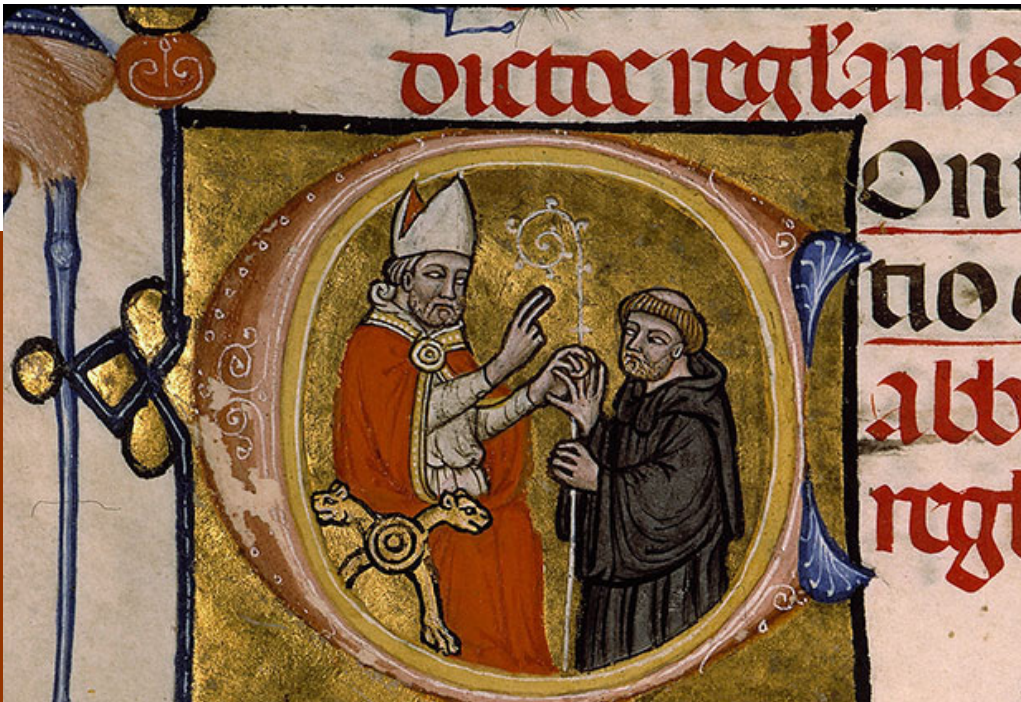 dictoe regl'aris
On
tio
abb
reg